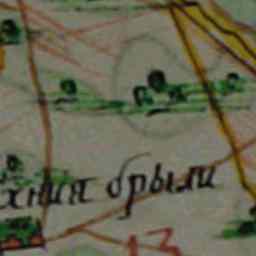 хния брыли
13